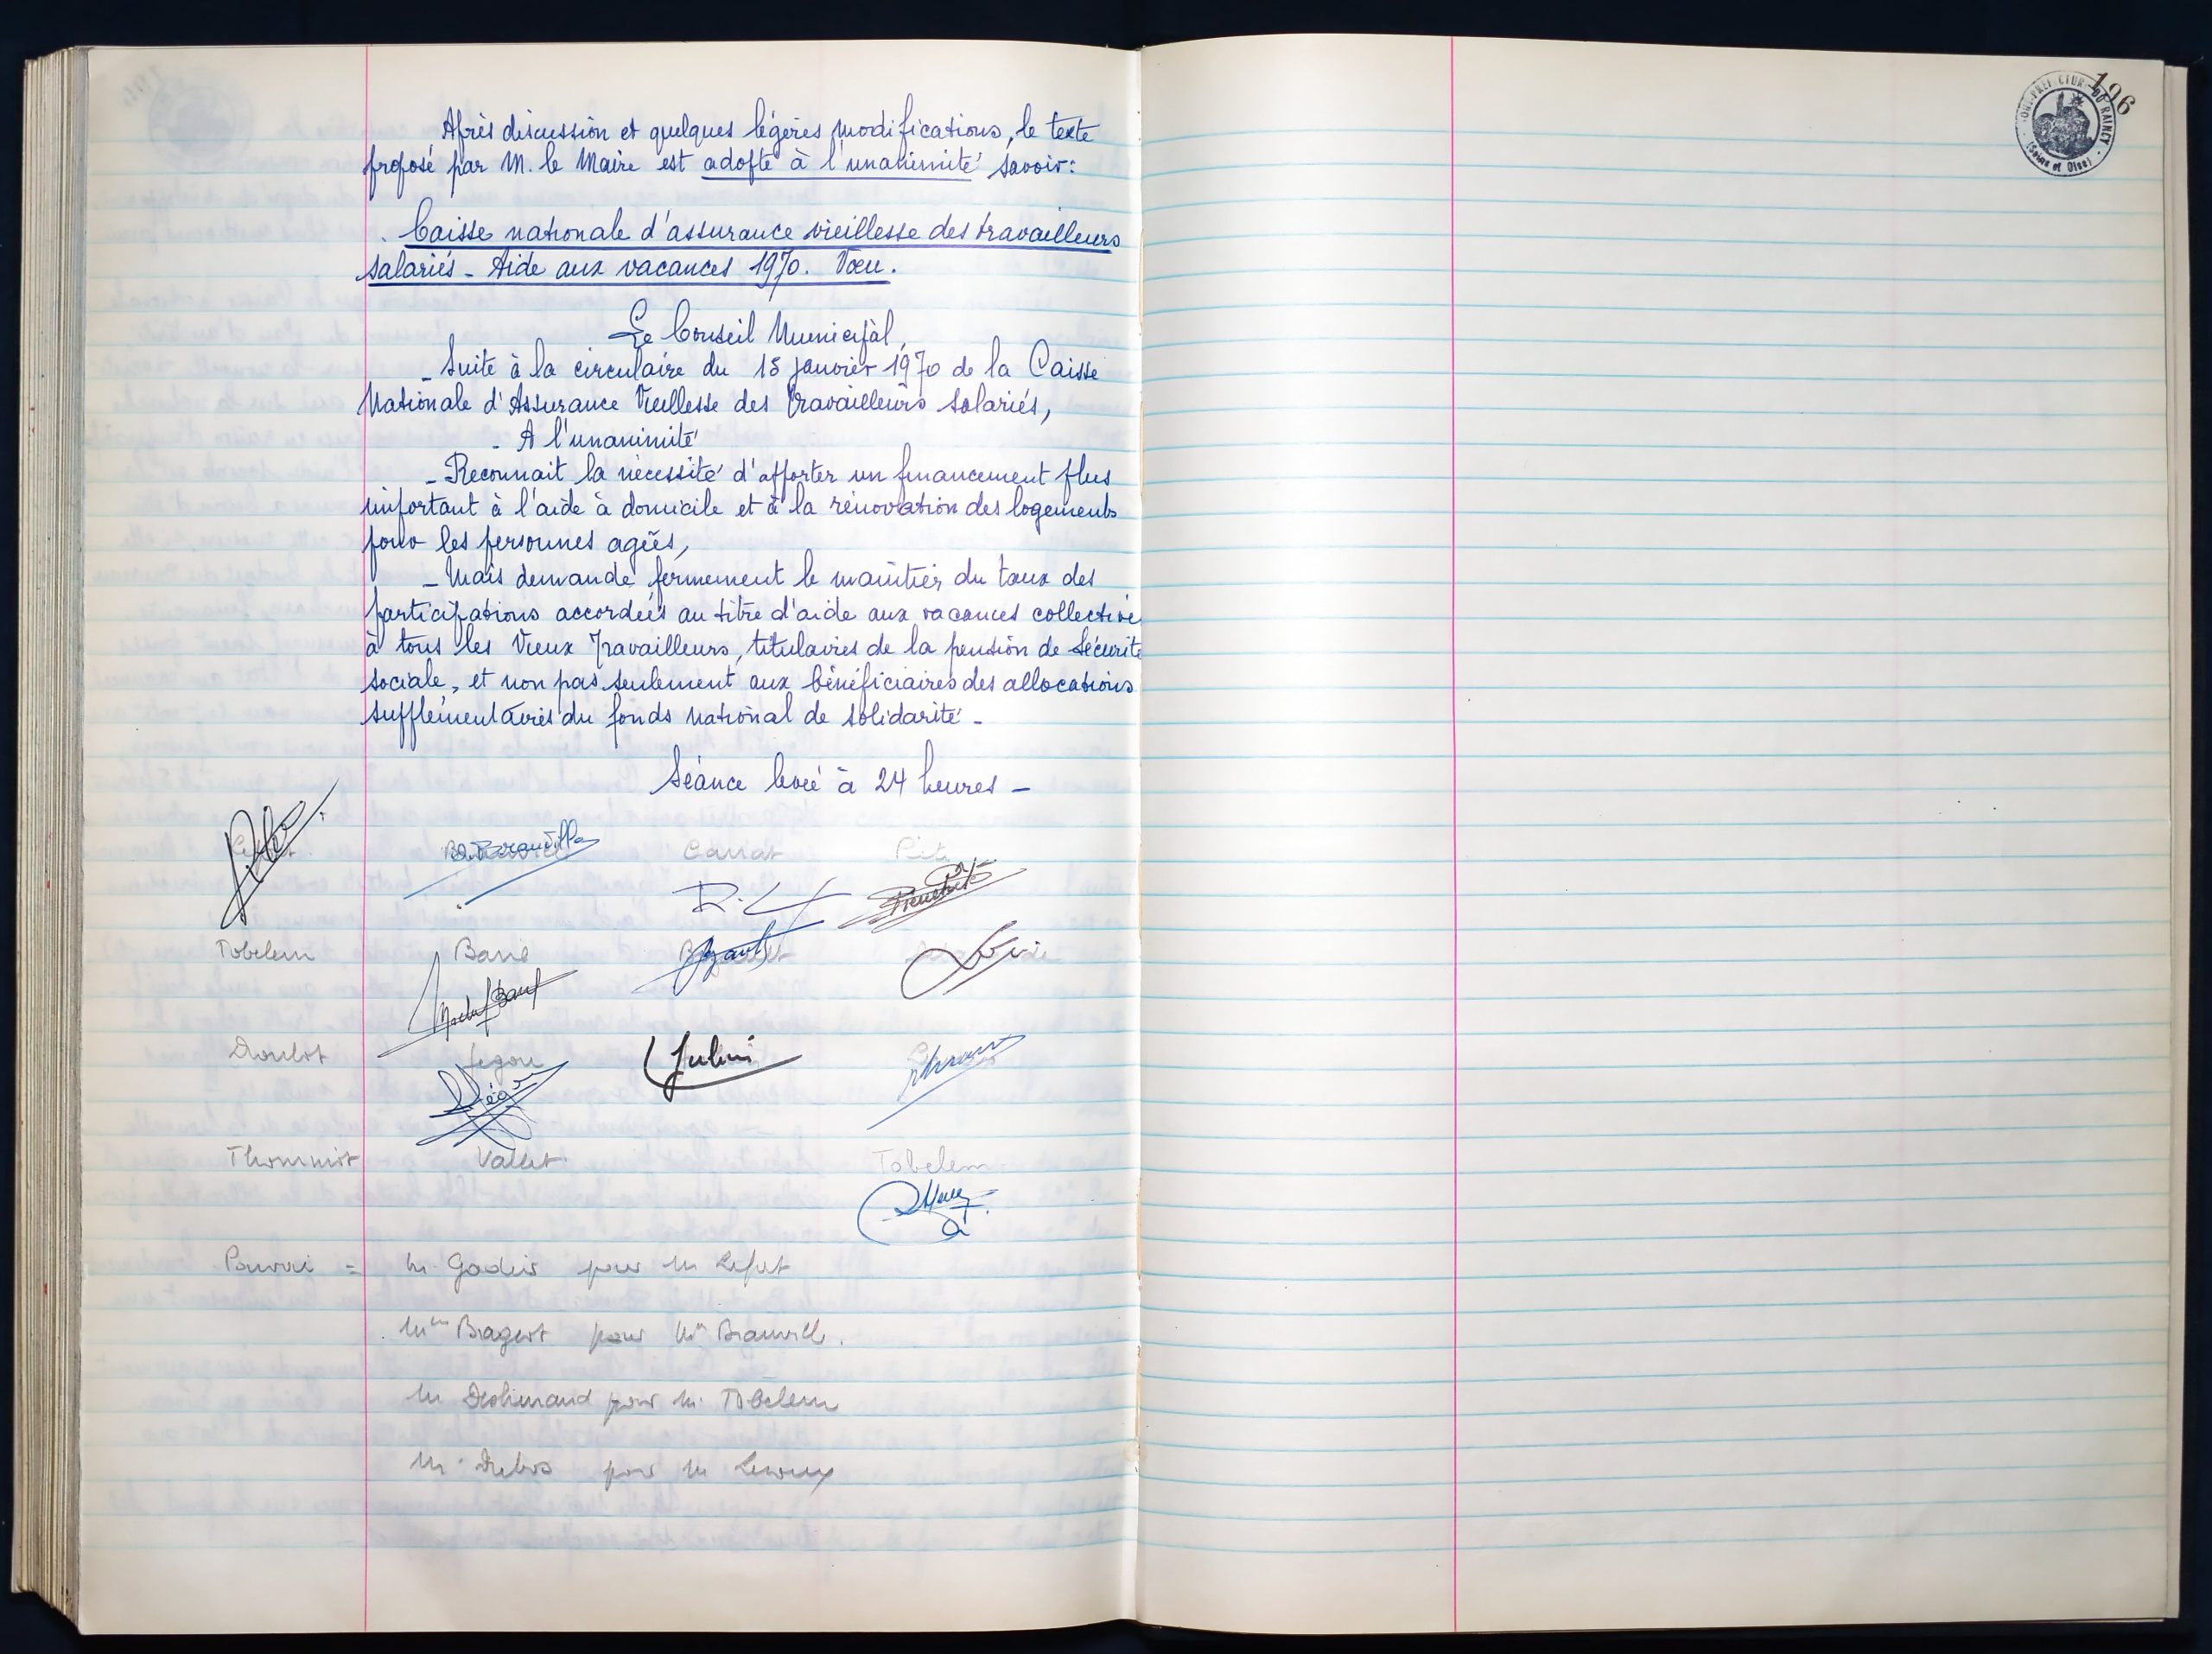 Après discussion et quelques légères modifications, le texte
proposé par M. le Maire est adopté à l'unanimité savoir:
Caisse nationale d'assurance vieillesse des travailleurs
salariés - Aide aux vacances 1970. Vœu.
Le Conseil Municipal,
- Suite à la circulaire du 15 janvier 1970 de la Caisse
Nationale d'Assurance Vieillesse des Travailleurs salariés,
- A l'unanimité
- Reconnait la nécessité d'apporter un financement plus
important à l'aide à domicile et à la rénovation des logements
pour les personnes agées,
- Mais demande fermement le maintien du taux des
participations accordées au titre d'aide aux vacances collectives
à tous les Vieux Travailleurs, titulaires de la pension de Sécurité
sociale, et non pas seulement aux bénéficiaires des allocations
supplémentaires du fonds national de solidarité -
Séance levée à 24 heures -
Carrat
Tobelem Barré
Jégou
Thommist Vallet Tobelem
Pouvoir = M. Godin pour M Lefort
Mme Bragert pour Mme Branville.
M pour M. Tobelem
M. Dubos pour M Leroux
196
SOUS-PRÉFECTURE DU RAINCY
(Seine et Oise)